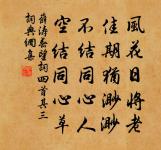 風花日將老
佳期獨渺渺
不結同心人
空結同心草
薛濤春望詞四首其三
詞典網集